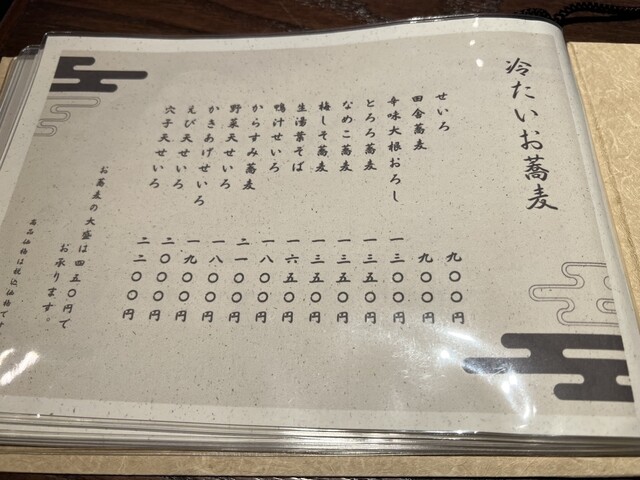 冷たいお蕎麦
せいろ 九〇〇円
田舎蕎麦 九〇〇円
辛味大根おろし 一三〇〇円
とろろ蕎麦 一三五〇円
なめこ蕎麦 一三五〇円
梅しそ蕎麦 一三五〇円
生湯葉そば 一六五〇円
鴨汁せいろ 一八〇〇円
からすみ蕎麦 二一〇〇円
野菜天せいろ 一八〇〇円
かきあげせいろ 一九〇〇円
えび天せいろ 二〇〇〇円
穴子天せいろ 二二〇〇円
お蕎麦の大盛は四五〇円で
お承ります。
商品価格は税込価格です